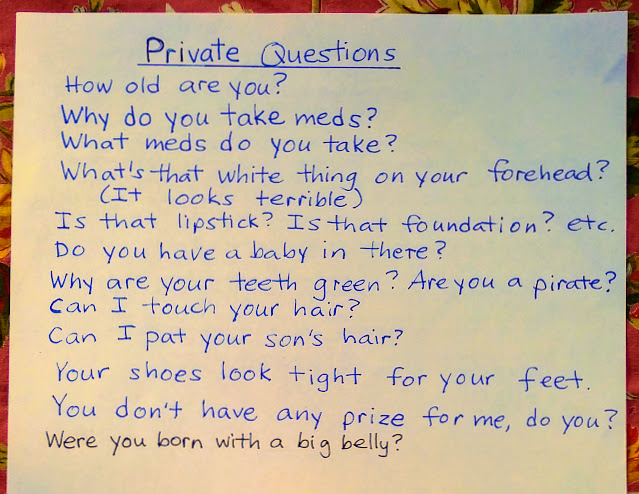 Private Questions
How old are you?
Why do you take meds?
What meds do you take?
What's that white thing on your forehead?
(It looks terrible)
Is that lipstick? Is that foundation? etc.
Do you have a baby in there?
Why are your teeth green? Are you a pirate?
Can I touch your hair?
Can I pat your son's hair?
Your shoes look tight for your feet.
You don't have any prize for me, do you?
Were you born with a big belly?